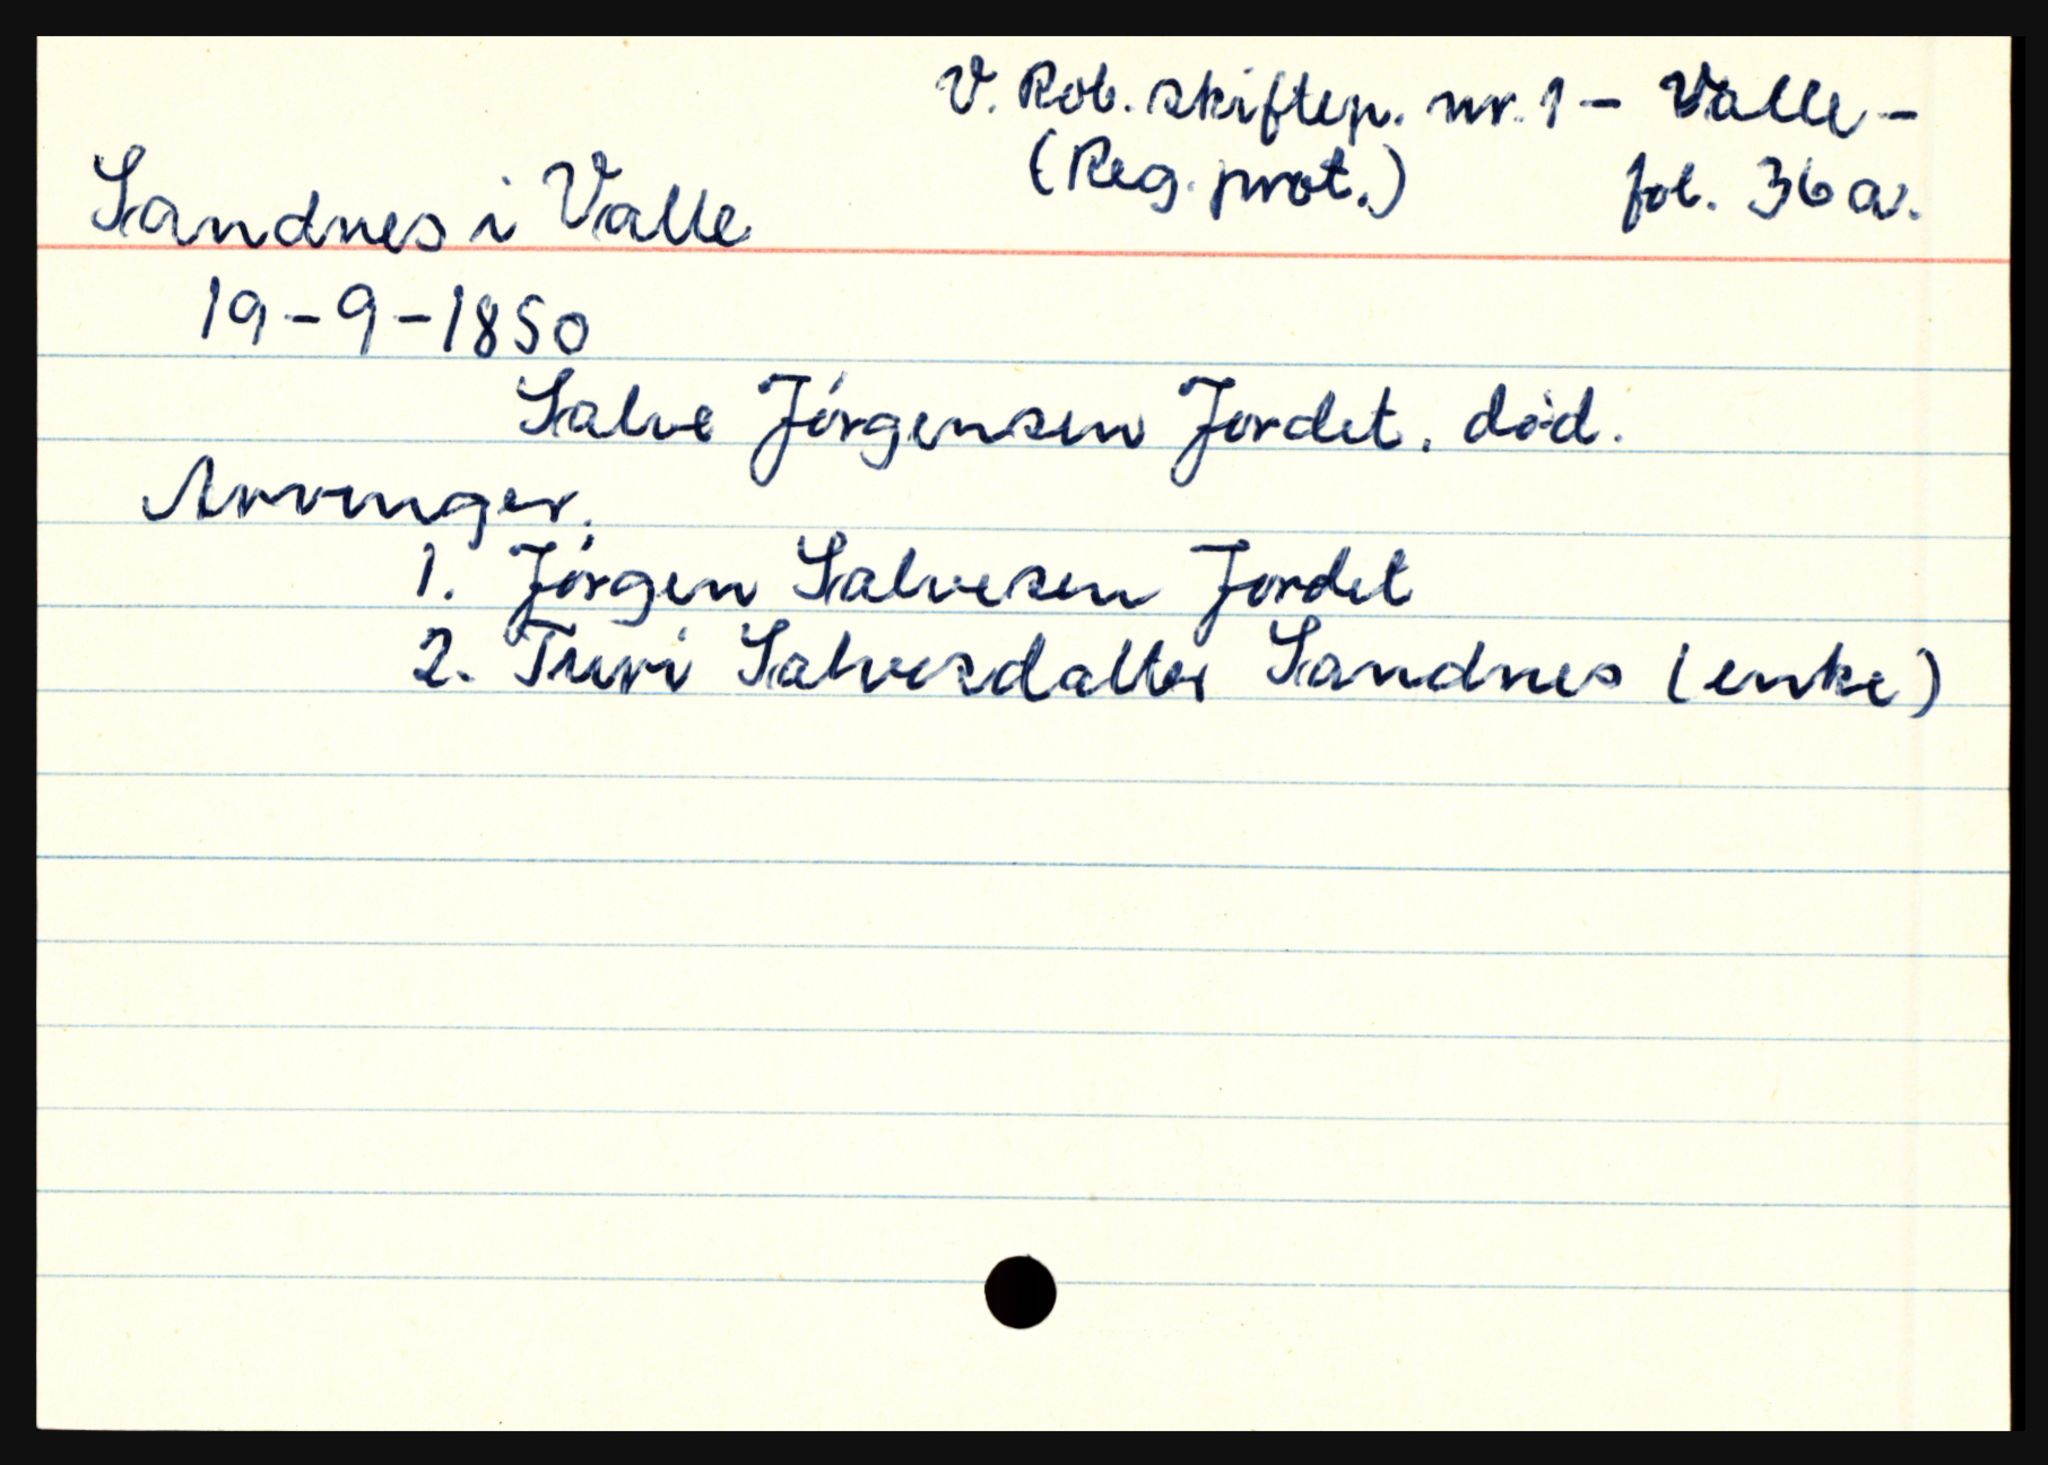 V. Rob. skiftep. nr. 1 – Valle –
(Reg. prot.) fol. 36 a.
Sandnes i Valle
19 – 9 – 1850
Salve Jørgensen Jordet. død.
Arvinger.
1. Jørgen Salvesen Jordet
2. Turi Salvesdatter Sandnes (enke)